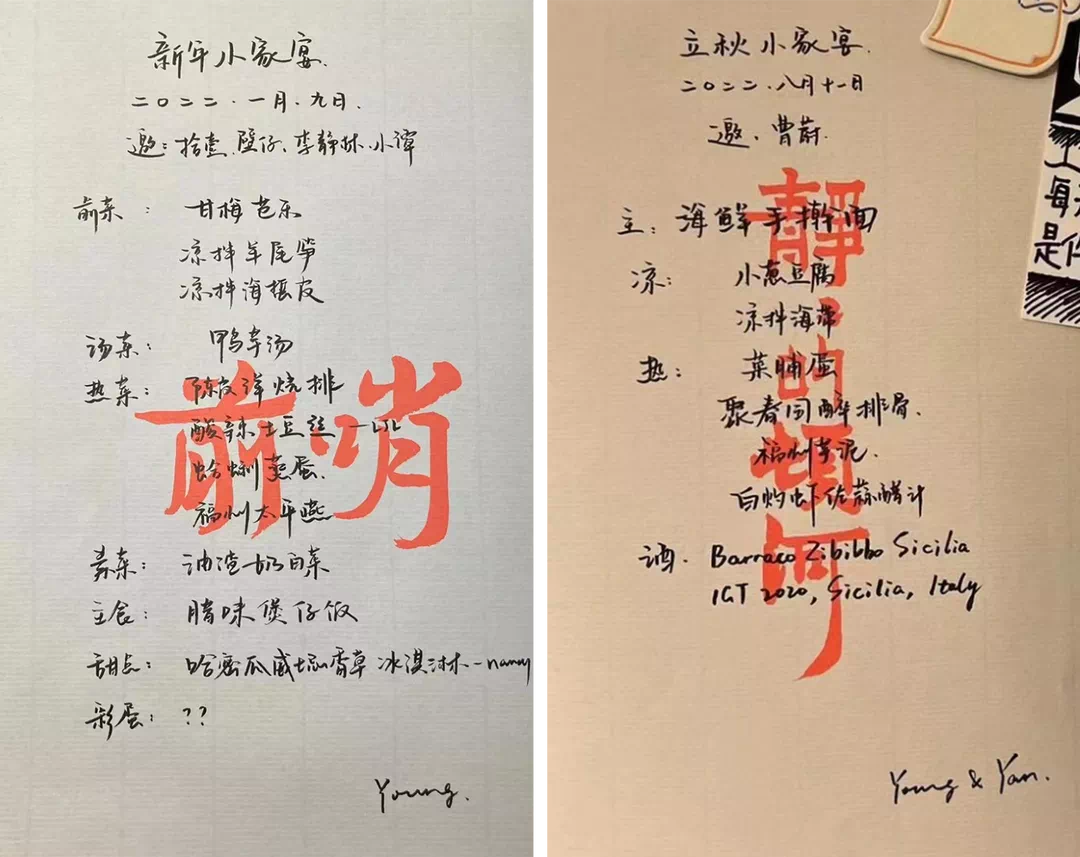 新年小家宴.
二〇二二.一月.九日.
邀:拾壹、壁仔、李静林、小谭
前菜: 甘梅芭乐
凉拌羊尾笋
凉拌海蜇皮
汤菜: 鸭羊汤
热菜: 陈皮洋烧排
酸辣土豆丝
蛤蜊蒸蛋
福州太平燕
素菜: 油渣奶白菜
主食: 腊味煲仔饭
甜点: 哈密瓜威士忌香草冰淇淋-nancy
彩蛋: ??
Young.
前哨
立秋小家宴.
二〇二二.八月十一日
邀、曹蔚.
主: 海鲜手擀面
凉: 小葱豆腐
凉拌海带
热: 菜脯蛋
聚春园醉排骨
福州芋泥.
白灼虾佐蒜醋汁
酒. Barraco Zibibbo Sicilia
IGT 2020, Sicilia, Italy
Young & Yan.
静静的顿河
每
是